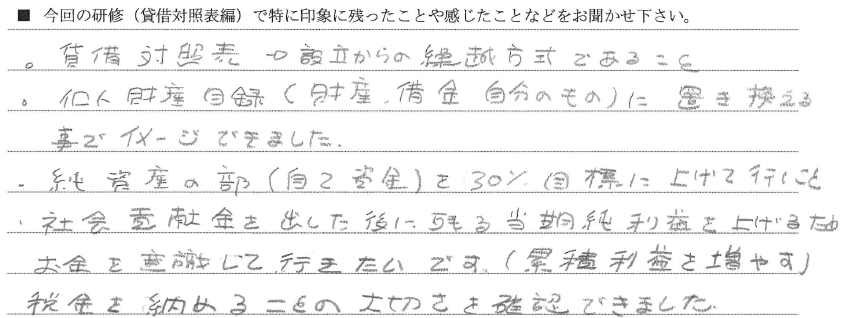 ■ 今回の研修（貸借対照表編）で特に印象に残ったことや感じたことなどをお聞かせ下さい。
。貸借対照表→設立からの繰越方式であること
。個人財産目録（財産、借金 自分のもの）に置き換える
事でイメージできました。
・純資産の部（自己資金）を30%目標に上げて行くこと
・社会貢献金を出した後に残る当期純利益を上げるため
お金を意識して行きたいです。（累積利益を増やす）
税金を納めることの大切さを確認できました。